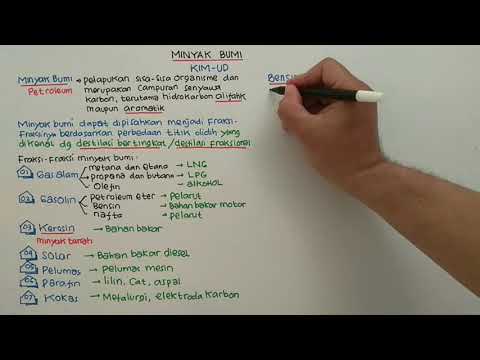 MINYAK BUMI
KIM-UD
Minyak Bumi → pelapukan sisa-sisa organisme dan
Petroleum merupakan campuran senyawa
karbon, terutama hidrokarbon alifatik
maupun aromatik
Minyak bumi dapat dipisahkan menjadi fraksi-
fraksinya berdasarkan perbedaan titik didih yang
dikenal dg destilasi bertingkat/destilasi fraksional
Fraksi-Fraksi minyak bumi:
01 Gas Alam metana dan etana → LNG
propana dan butana → LPG
Olefin → alkohol
02 Gasolin petroleum eter → Pelarut
Bensin → Bahan bakar motor
nafta → pelarut
03 Kerosin → Bahan bakar
minyak tanah
04 Solar → Bahan bakar diesel
05 Pelumas → Pelumas mesin
06 Parafin → lilin, cat, aspal
07 Kokas → Metalurgi, elektroda karbon
Bensi